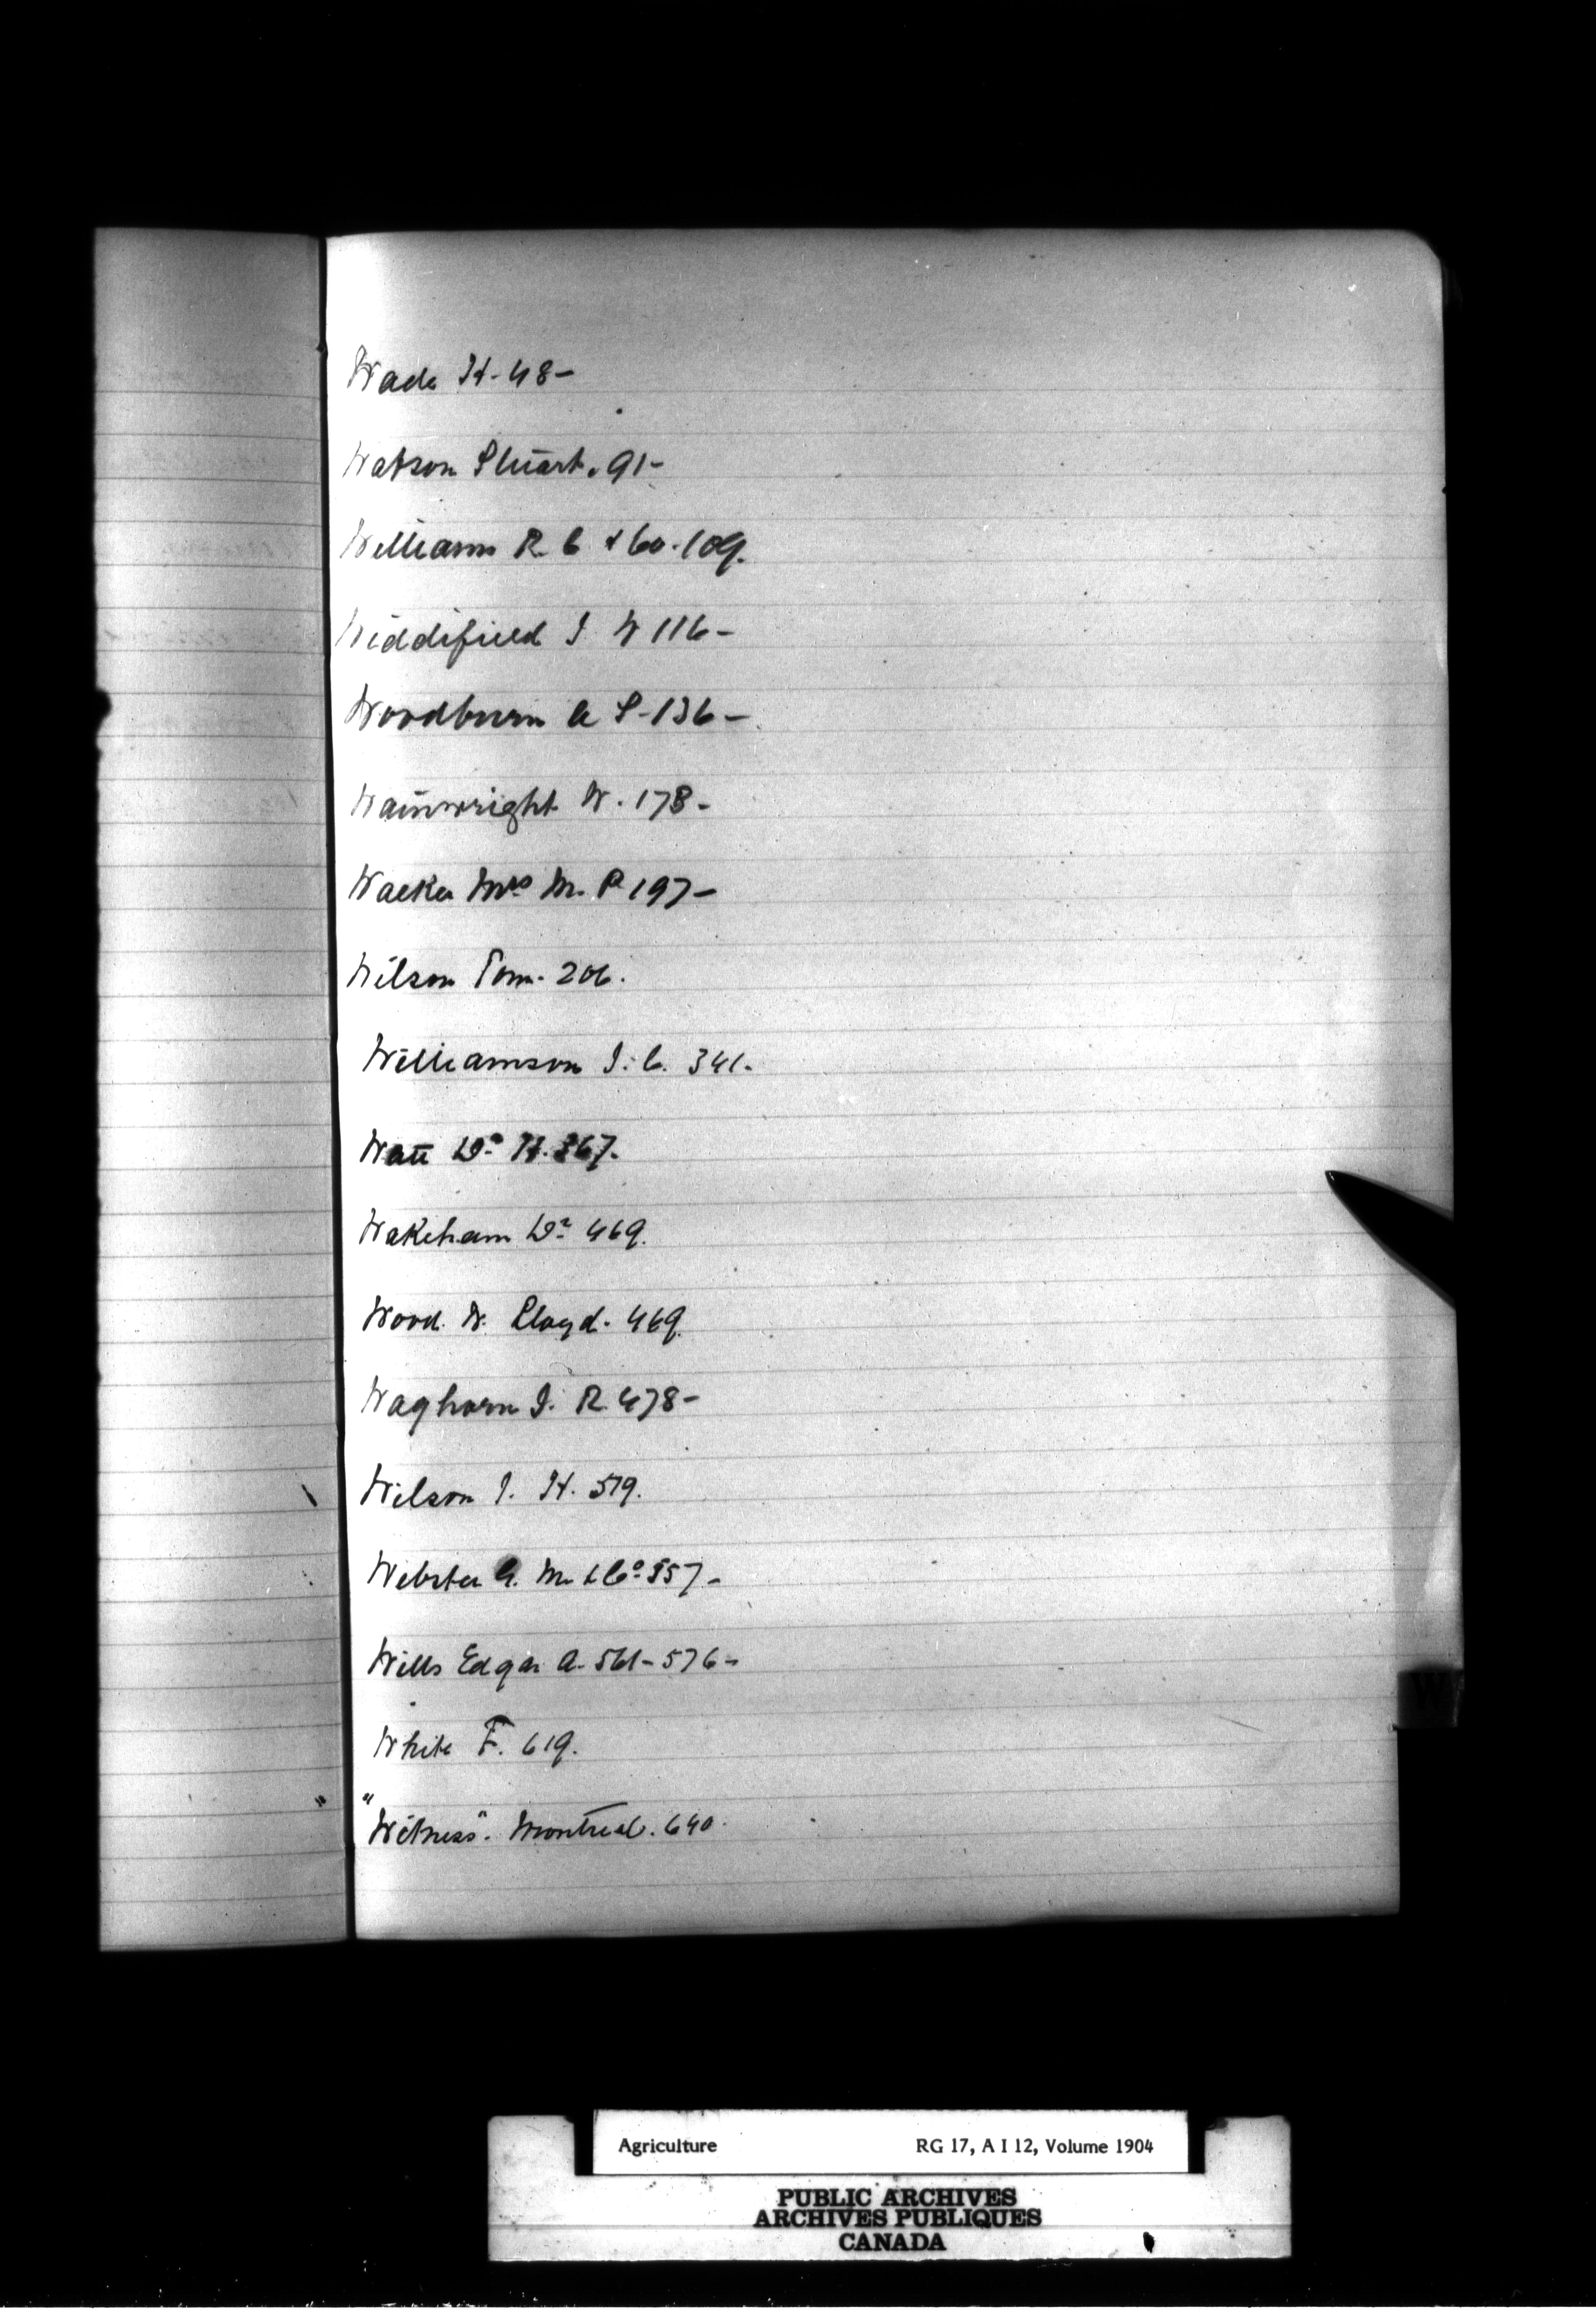 Wade H. 48-
Watson Stuart. 91-
Williams R. C & Co. 109.
Widdifield J W 116-
Woodburn A S-136-
Wainwright W. 178-
Walker Mrs M. P 197-
Wilson Tom. 206.
Williamson J. C. 341.
Watt Dr H. 367.
Wakeham Dr 469.
Wood W. Lloyd. 469.
Waghorn J. R. 478-
Wilson J. H. 519.
Webster G. M & Co 557-
Wills Edgar A. 561-576-
White F. 619.
"Witness". Montreal. 640.
W
Agriculture RG 17, A I 12, Volume 1904
PUBLIC ARCHIVES
ARCHIVES PUBLIQUES
CANADA